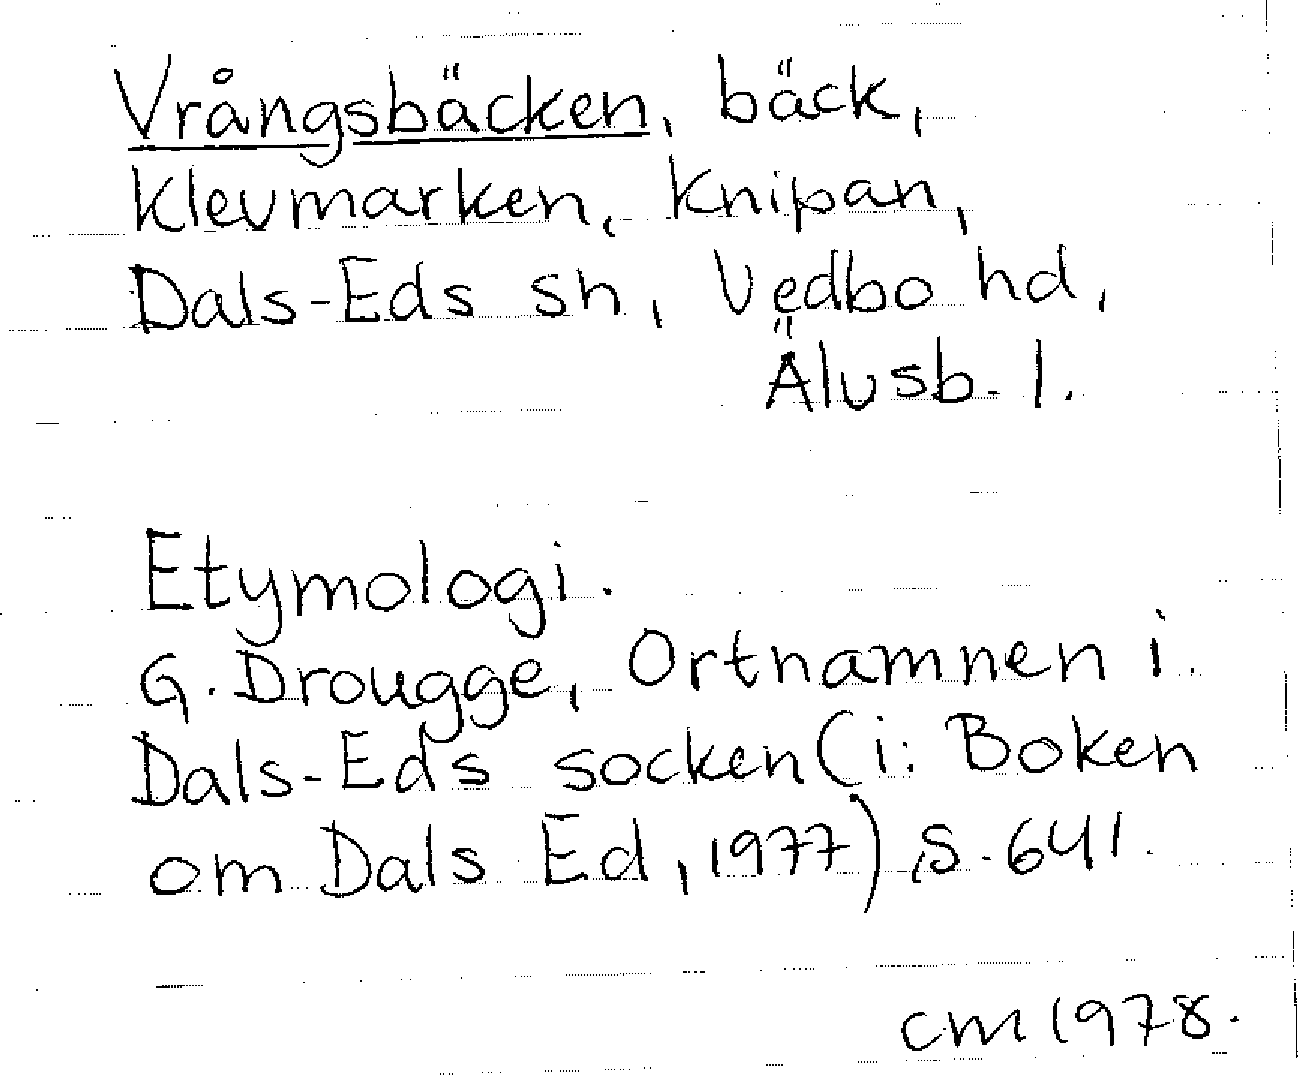 Vrångsbäcken, bäck,
Klevmarken, Knipan,
Dals-Eds sn, Vedbo hd,
Älvsb. l.
Etymologi.
G. Drougge, Ortnamnen i
Dals-Eds socken (i: Boken
om Dals Ed, 1977), s. 641.
CM 1978.